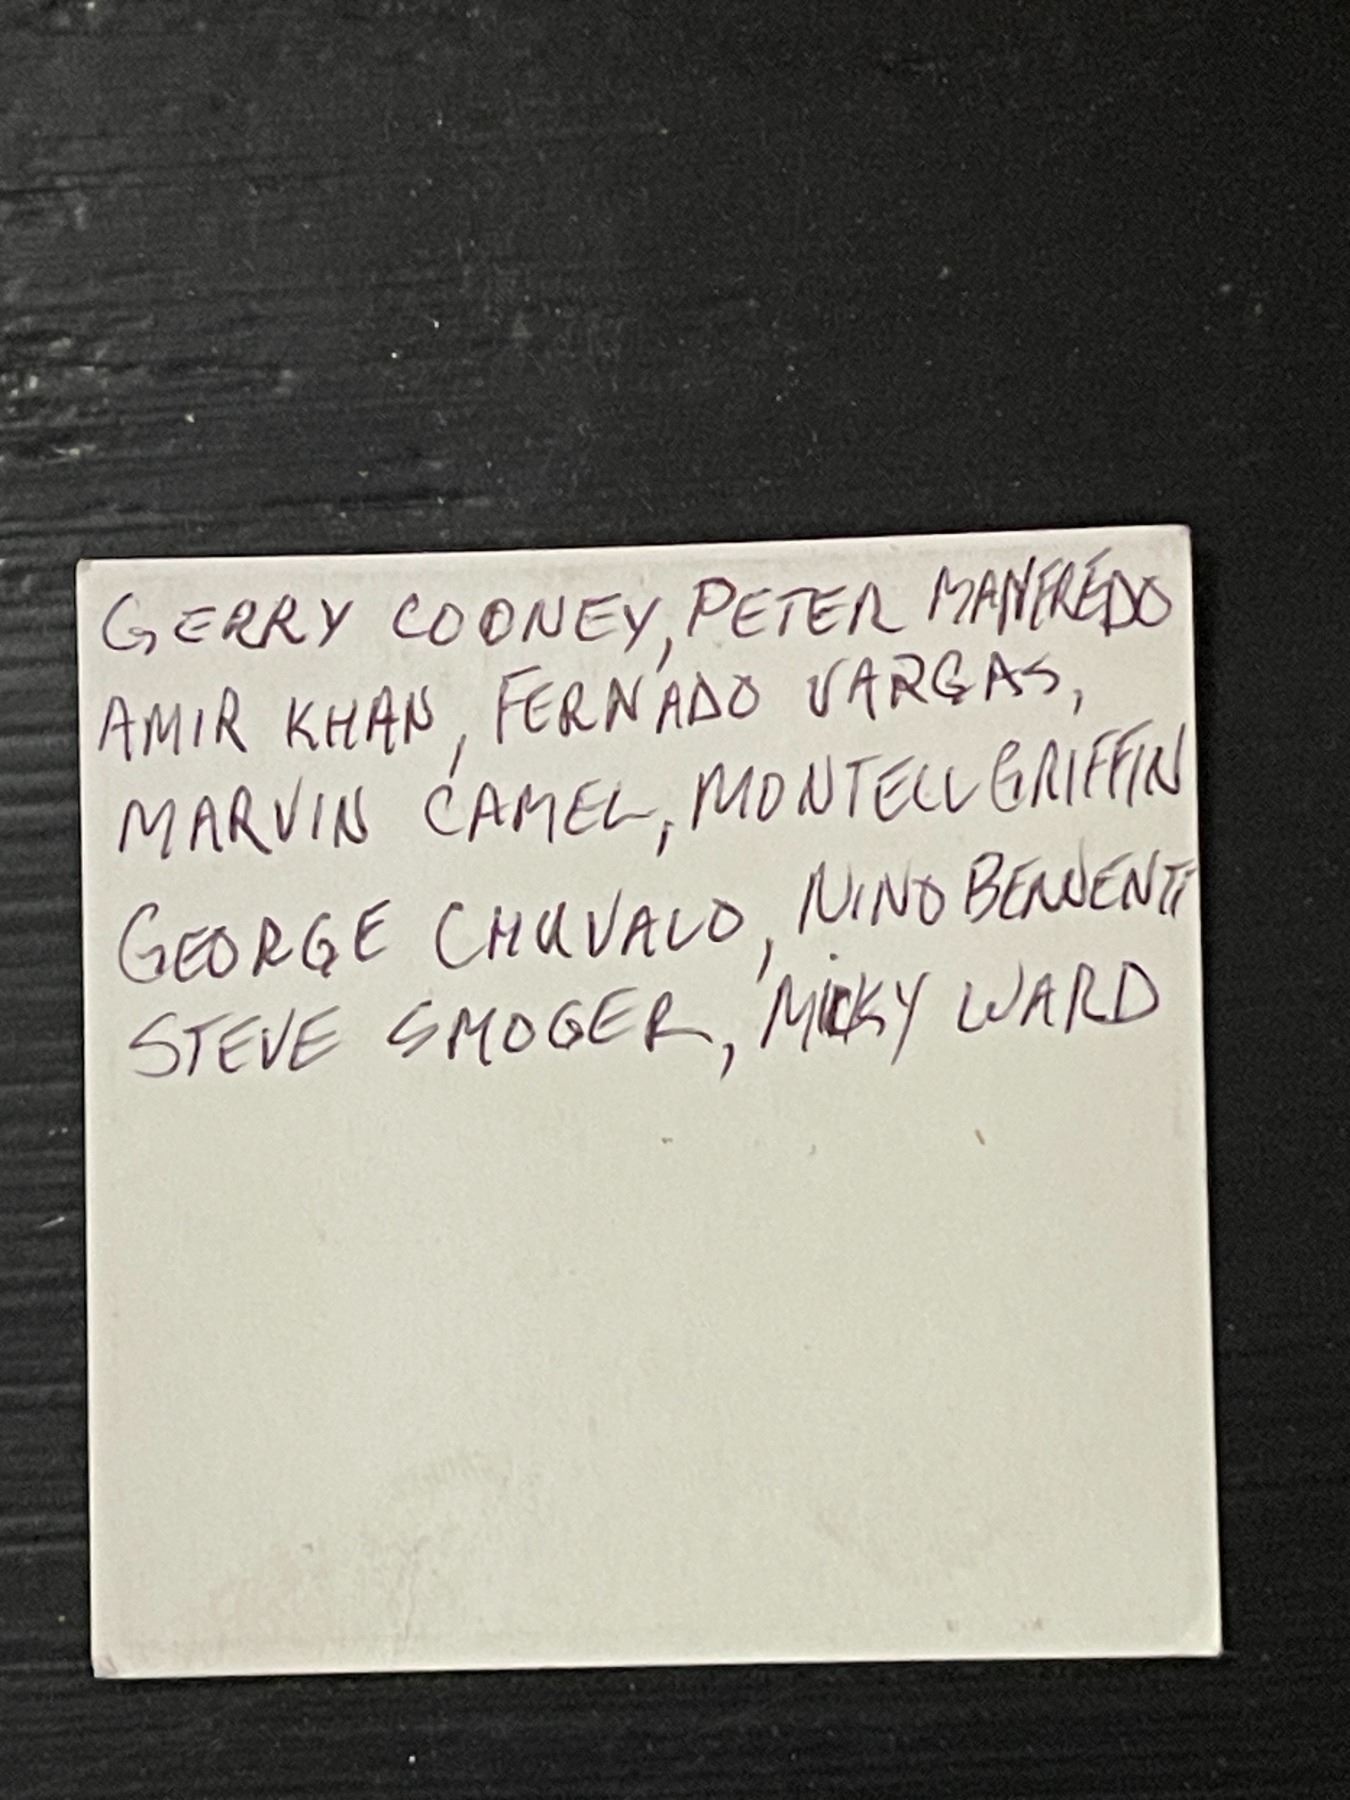 GERRY COONEY, PETER MANFREDO
AMIR KHAN, FERNADO VARGAS,
MARVIN CAMEL, MONTELL GRIFFIN
GEORGE CHUVALO, NINO BENVENTI
STEVE SMOGER, MICKY WARD